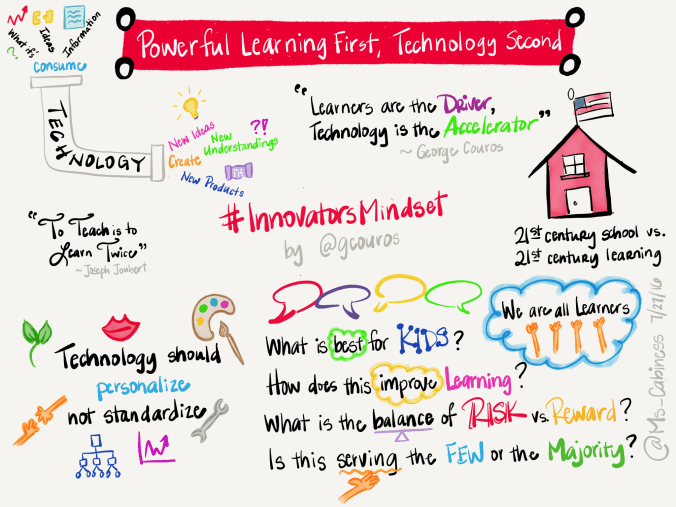 Powerful Learning First, Technology Second
What if's
Ideas
Information
?
Consume
TECHNOLOGY
New Ideas
?!
New
Understandings
Create
New Products
"Learners are the Driver,
Technology is the Accelerator"
~ George Couros
#InnovatorsMindset
by @gcouros
21st century school vs.
21st century learning
"To Teach is to
Learn Twice"
~ Joseph Joubert
Technology should
personalize
not standardize
We are all Learners
What is best for KIDS?
How does this improve Learning?
What is the balance of RISK vs. Reward?
Is this serving the FEW or the Majority?
@Ms_Cabiness 7/27/16